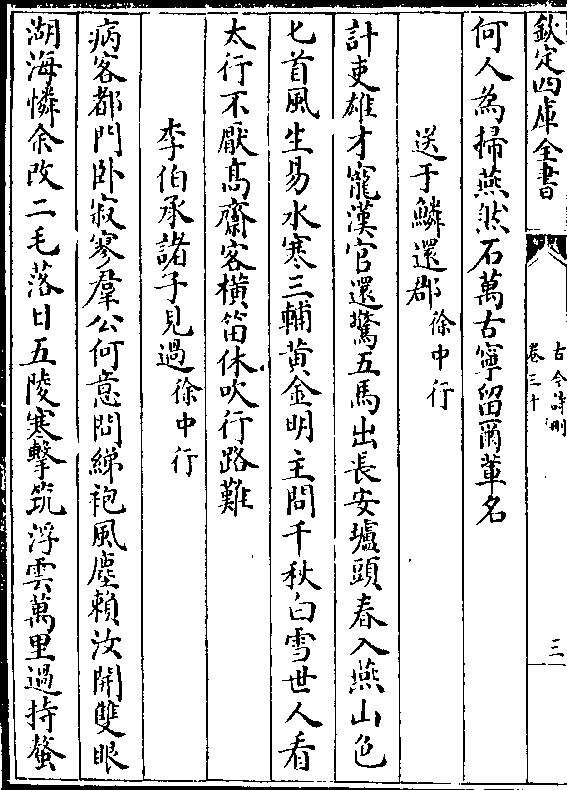 欽定四庫全書
古今詩刪
卷三十
三
何人為掃燕然石萬古寧留爾輩名
送于鱗還郡徐中行
計吏雄才寵漢官還驚五馬出長安壚頭春入燕山色
匕首風生易水寒三輔黄金明主問千秋白雪世人看
太行不厭髙齋客横笛休吹行路難
李伯承諸子見過徐中行
病客都門卧寂寥羣公何意問綈袍風塵頼汝開雙眼
湖海憐余改二毛落日五陵寒擊筑浮雲萬里過持螯